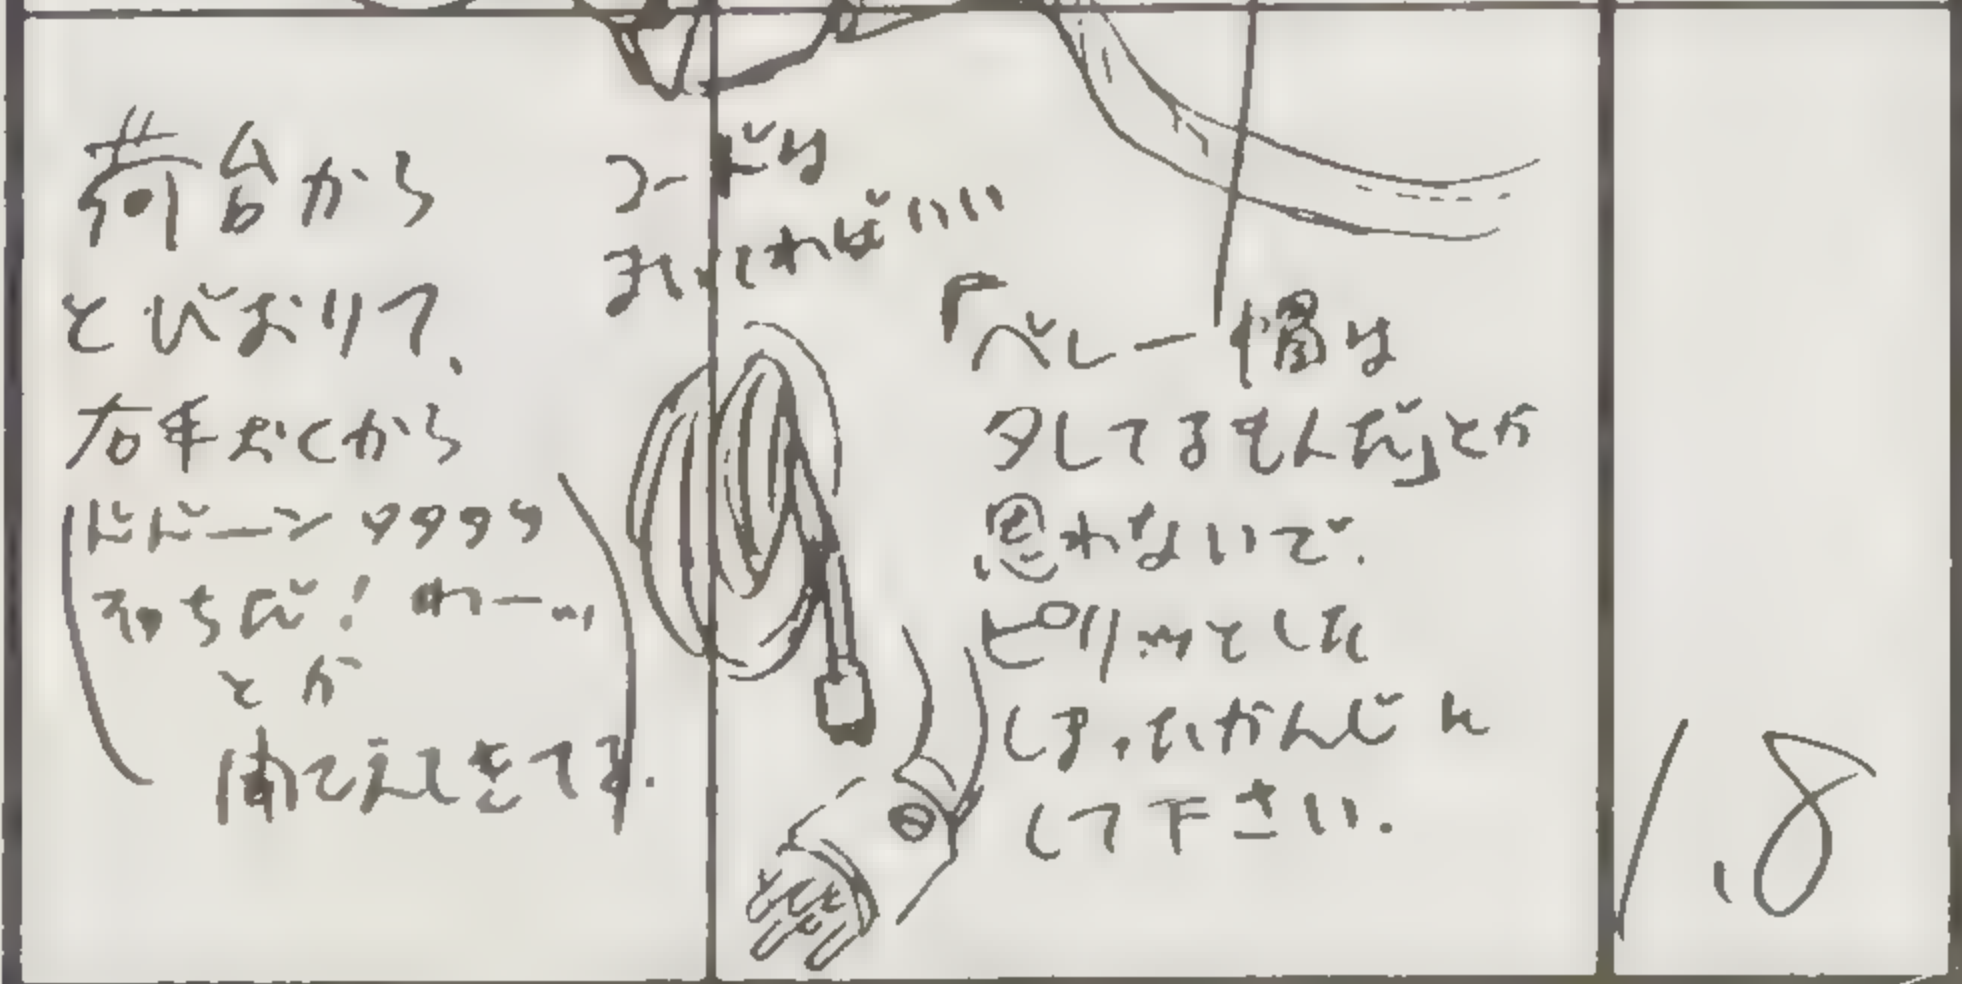 荷台から
とびおりて、
右手おくから
ドドーンタタタタ
わっちだ！わーッ
とか
聞こえてきてる.
コードは
まいてればいい
「ベレー帽は
タレてるもんだ」とか
思わないで.
ピリッとした
しまったかんじに
して下さい.
1.8